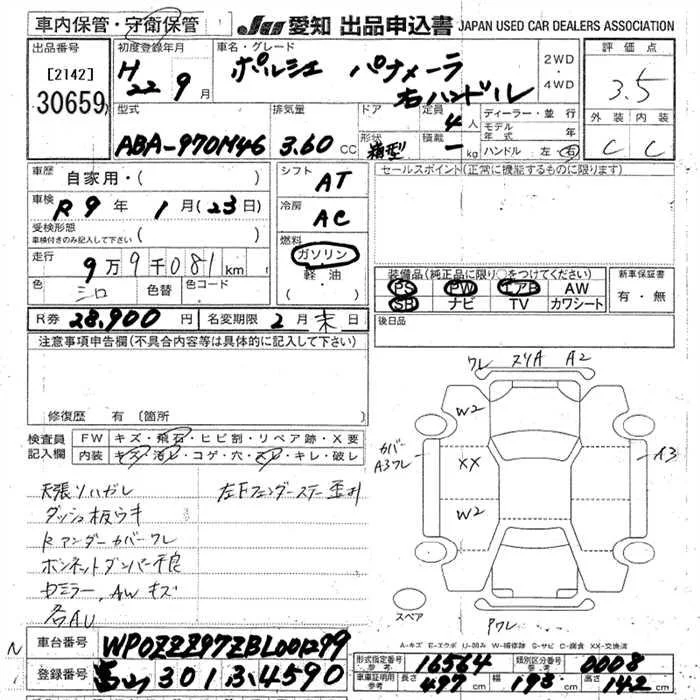 車内保管・守衛保管
JU 愛知 出品申込書 JAPAN USED CAR DEALERS ASSOCIATION
出品番号
[2142]
30659
初度登録年月
H 22 9月
車名・グレード
ポルシェ パナメーラ
右ハンドル
2WD
・
4WD
評価点
3.5
外装 内装
C C
型式
ABA-970M46
排気量
3.60 CC
ドア
形状
箱型
定員
4人
積載
- kg
ディーラー・並行
モデル年式 年
ハンドル 左・右
車歴
自家用・( )
車検
R 9年 1月(23日)
受検形態
車検付きのみ記入して下さい ( )
走行
9万9千081km
色 色替 色コード
シロ
シフト
AT
冷房
AC
燃料
ガソリン
軽・油
( ・ )
セールスポイント(正常に機能するものに限ります)
装備品(純正品に限り〇をつけてください)
PS PW エアB AW
SR ナビ TV カワシート
新車保証書
有・無
後日品
R券 28,900円
名変期限 2月末日
注意事項申告欄(不具合内容等は具体的に記入して下さい)
修復歴 有 [箇所
検査員
記入欄
FW キズ・飛石・ヒビ割・リペア跡・X要
内装 キズ・汚レ・コゲ・穴・スレ・キレ・破レ
天張リハガレ
左Fフェンダーステー歪み
ダッシュ板ウキ
Rアンダーカバーワレ
ボンネットダンパー不良
ミラー、AWキズ
各AU
ワレ スリA A2
W2
カバー
A3ワレ
XX
A3
W2
スペア
Pワレ
A-キズ E-エクボ U-凹み W-補修跡 S-サビ C-腐食 XX-交換済
N
車台番号
WP0ZZZ97ZBL001299
登録番号
富山 301 ふ 4590
形式指定番号
参考
16564
類別区分番号
参考
0008
車庫証明用
参考
長さ 497cm
幅 193cm
高さ 142cm